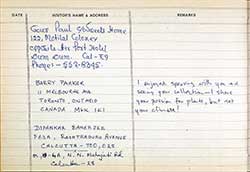 DATE VISITOR'S NAME & ADDRESS REMARKS
Gour Paul Students Home
122, Motilal Colony
opposite the Post Hotel
Dum Dum. Cal-
BARRY PARKER
11 MELBOURNE AVE
TORONTO, ONTARIO
CANADA M6K 1K1
I enjoyed speaking with you and
seeing your collection - I share
your passion for plants, but not
your climate!
DIPANKAR BANERJEE
CALCUTTA - 700,025
N. N.
Calcutta - 28